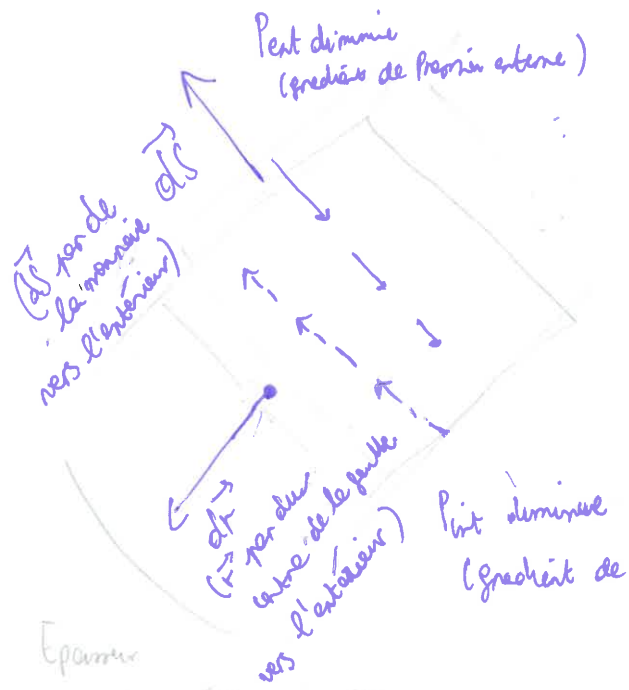 Pext diminue
(gradient de Pression externe)
dS
(dS par de
la monnaie
vers l'extérieur)
dr
(r par du
centre de la goutte
vers l'extérieur)
Pint diminue
(gradient de
Epaisseur